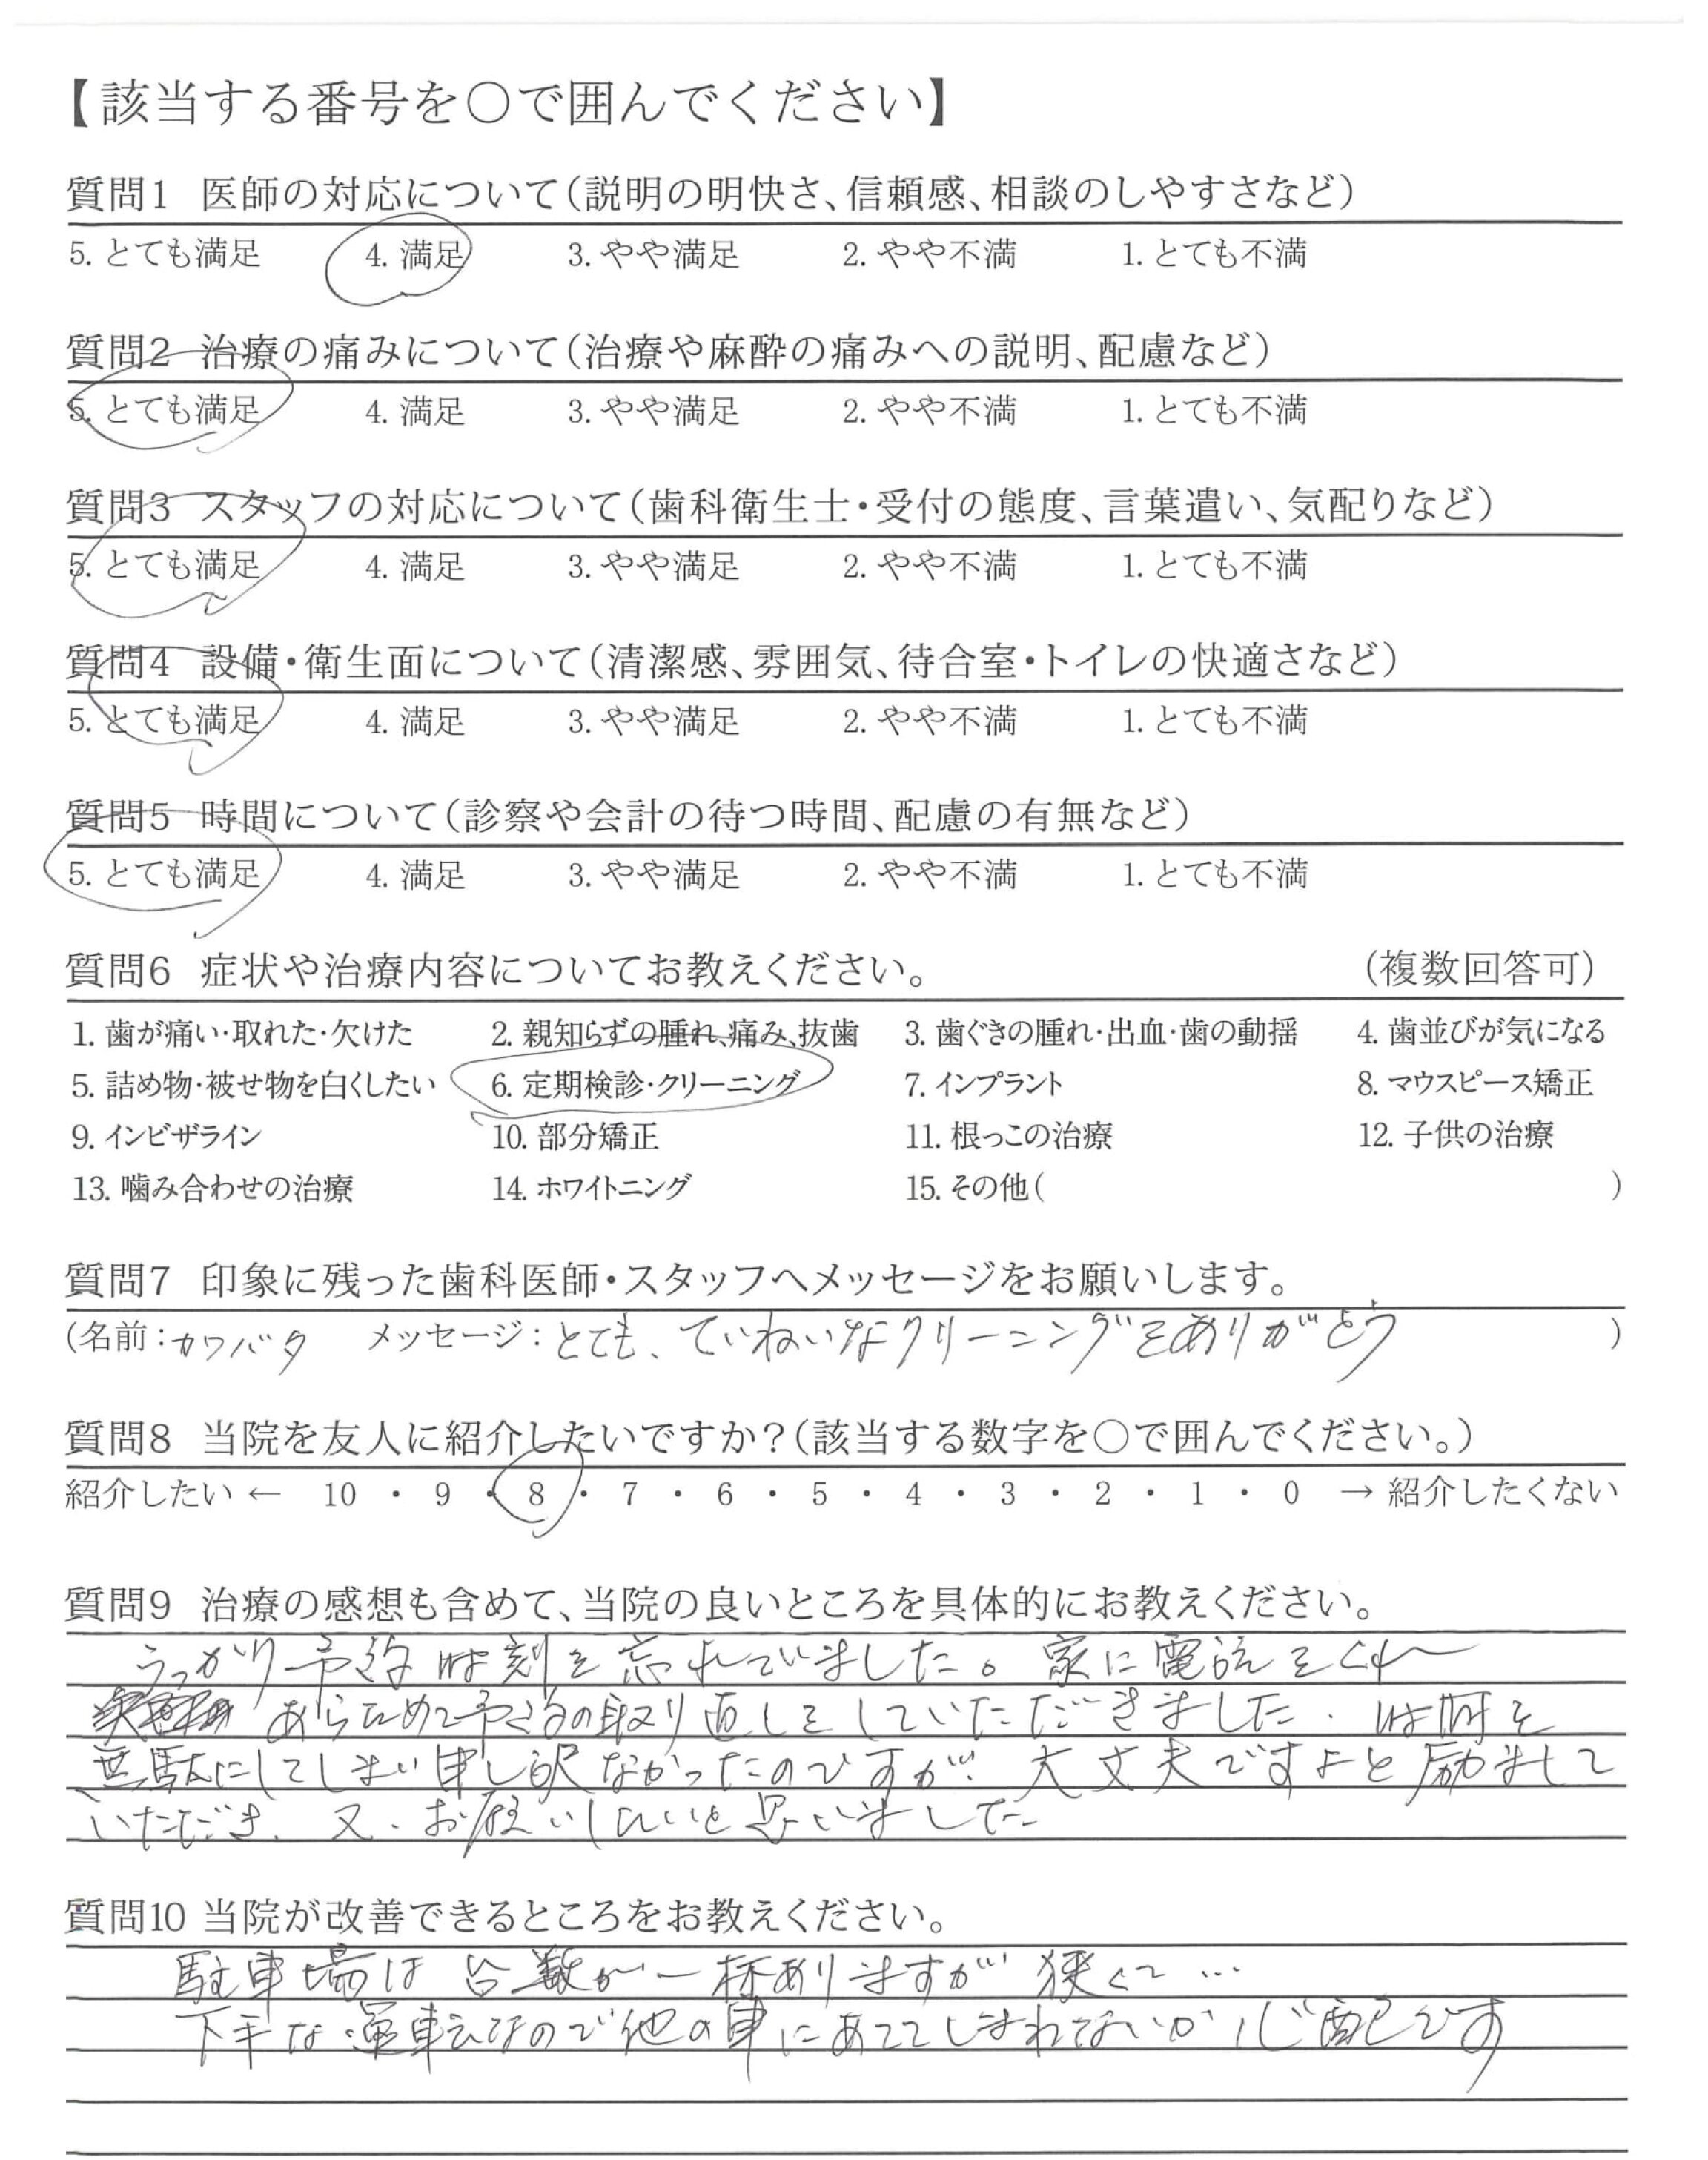 【該当する番号を○で囲んでください】
質問1 医師の対応について（説明の明快さ、信頼感、相談のしやすさなど）
5. とても満足 4. 満足 3. やや満足 2. やや不満 1. とても不満
質問2 治療の痛みについて（治療や麻酔の痛みへの説明、配慮など）
5. とても満足 4. 満足 3. やや満足 2. やや不満 1. とても不満
質問3 スタッフの対応について（歯科衛生士・受付の態度、言葉遣い、気配りなど）
5. とても満足 4. 満足 3. やや満足 2. やや不満 1. とても不満
質問4 設備・衛生面について（清潔感、雰囲気、待合室・トイレの快適さなど）
5. とても満足 4. 満足 3. やや満足 2. やや不満 1. とても不満
質問5 時間について（診察や会計の待つ時間、配慮の有無など）
5. とても満足 4. 満足 3. やや満足 2. やや不満 1. とても不満
質問6 症状や治療内容についてお教えください。 （複数回答可）
1. 歯が痛い・取れた・欠けた 2. 親知らずの腫れ、痛み、抜歯 3. 歯ぐきの腫れ・出血・歯の動揺 4. 歯並びが気になる
5. 詰め物・被せ物を白くしたい 6. 定期検診・クリーニング 7. インプラント 8. マウスピース矯正
9. インビザライン 10. 部分矯正 11. 根っこの治療 12. 子供の治療
13. 噛み合わせの治療 14. ホワイトニング 15. その他（ ）
質問7 印象に残った歯科医師・スタッフへメッセージをお願いします。
（名前：カワバタ メッセージ：とても、ていねいなクリーニングをありがとう ）
質問8 当院を友人に紹介したいですか？（該当する数字を○で囲んでください。）
紹介したい ← 10 ・ 9 ・ 8 ・ 7 ・ 6 ・ 5 ・ 4 ・ 3 ・ 2 ・ 1 ・ 0 → 紹介したくない
質問9 治療の感想も含めて、当院の良いところを具体的にお教えください。
うっかり予約時刻を忘れていました。家に電話をくれ
あらためて予約の取り直しをしていただきました. 時間を
無駄にしてしまい申し訳なかったのですが、大丈夫ですよと励まして
いただき、又、お願いしたいと思いました
質問10 当院が改善できるところをお教えください。
駐車場は台数が一杯ありますが狭くて…
下手な運転なので他の車にあててしまわないか心配です